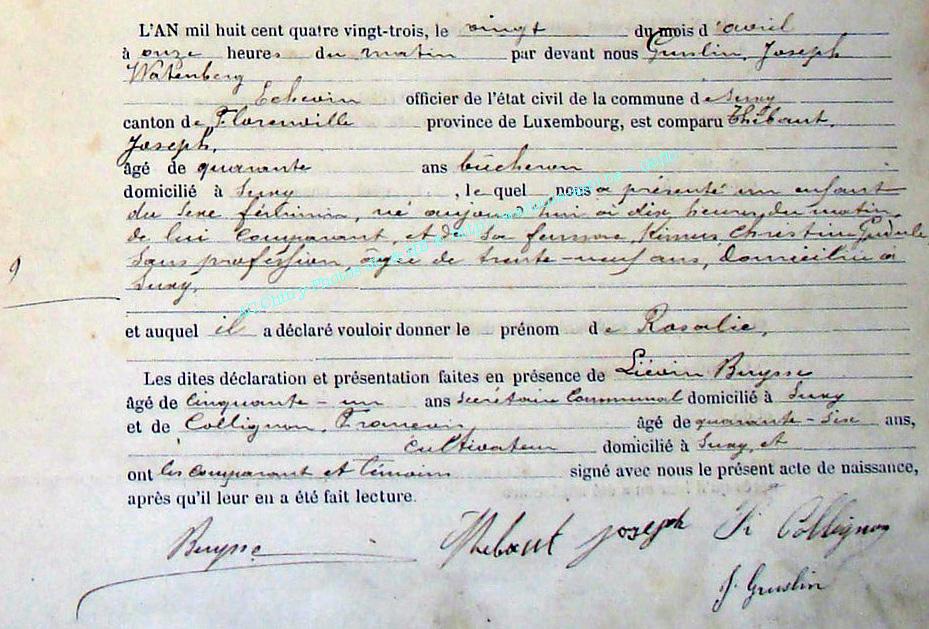 L'AN mil huit cent quatre vingt-trois, le vingt du mois d'avril
à onze heures du matin par devant nous Gruslin, Joseph
Watenberg
Echevin officier de l'état civil de la commune de Suxy
canton de Florenville province de Luxembourg, est comparu Thibaut,
Joseph,
âgé de quarante ans bûcheron
domicilié à Suxy, le quel nous a présenté un enfant
du sexe féminin, né aujourd'hui à dix heures du matin,
de lui comparant, et de sa femme, Christine Gudule,
sans profession, âgée de trente-neuf ans, domiciliée à
Suxy.
9
et auquel il a déclaré vouloir donner le prénom de Rosalie,
Les dites déclaration et présentation faites en présence de Liévin Buysse
âgé de cinquante-un ans secrétaire communal domicilié à Suxy
et de Collignon, François âgé de quarante-six ans,
cultivateur domicilié à Suxy, et
ont les comparant et témoins signé avec nous le présent acte de naissance,
après qu'il leur en a été fait lecture.
Buysse Thibaut Joseph Fs Collignon
J. Gruslin